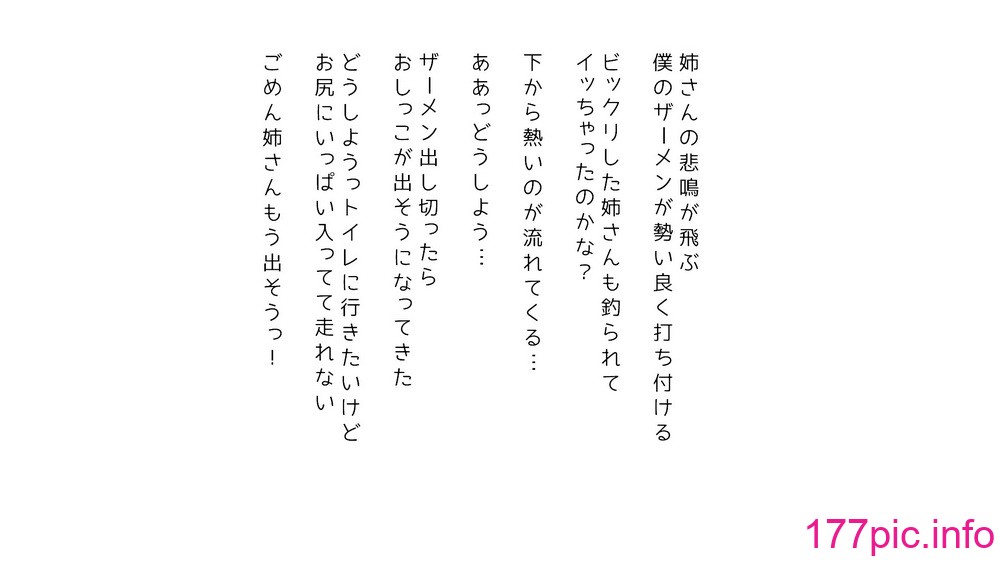 姉さんの悲鳴が飛ぶ
僕のザーメンが勢い良く打ち付ける
ビックリした姉さんも釣られて
イッちゃったのかな？
下から熱いのが流れてくる…
ああっどうしよう…
ザーメン出し切ったら
おしっこが出そうになってきた
どうしようっトイレに行きたいけど
お尻にいっぱい入ってて走れない
ごめん姉さんもう出そうっ！
177pic.info